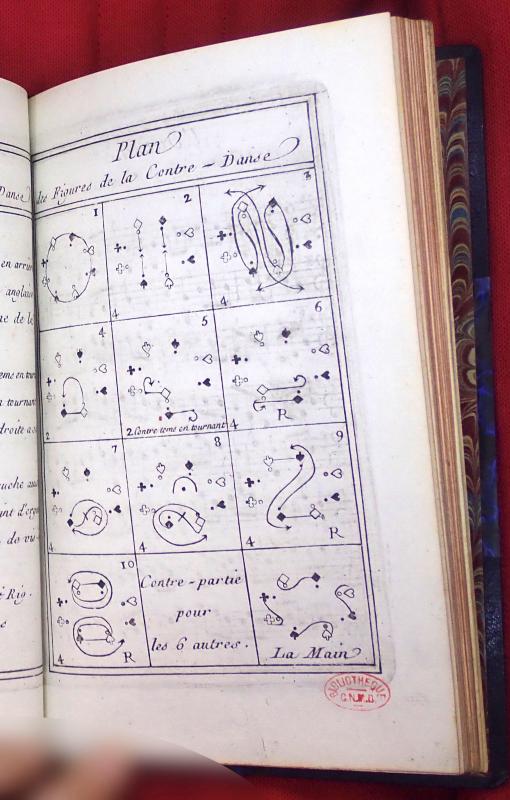 Danse
en arriè
anglaise
ne de la
teme en tourn
n tournant
droite a
uche au
ant d'org
de vu
Rig.
Plan
des Figures de la Contre - Danse
1
2
3
4
4
4
5
6
2
2 Contre teme en tournant
4
R
7
8
9
4
4
4
R
10
4
R
Contre-partie
pour
les 6 autres.
La Main
BIBLIOTHEQUE
C.N.M.D.